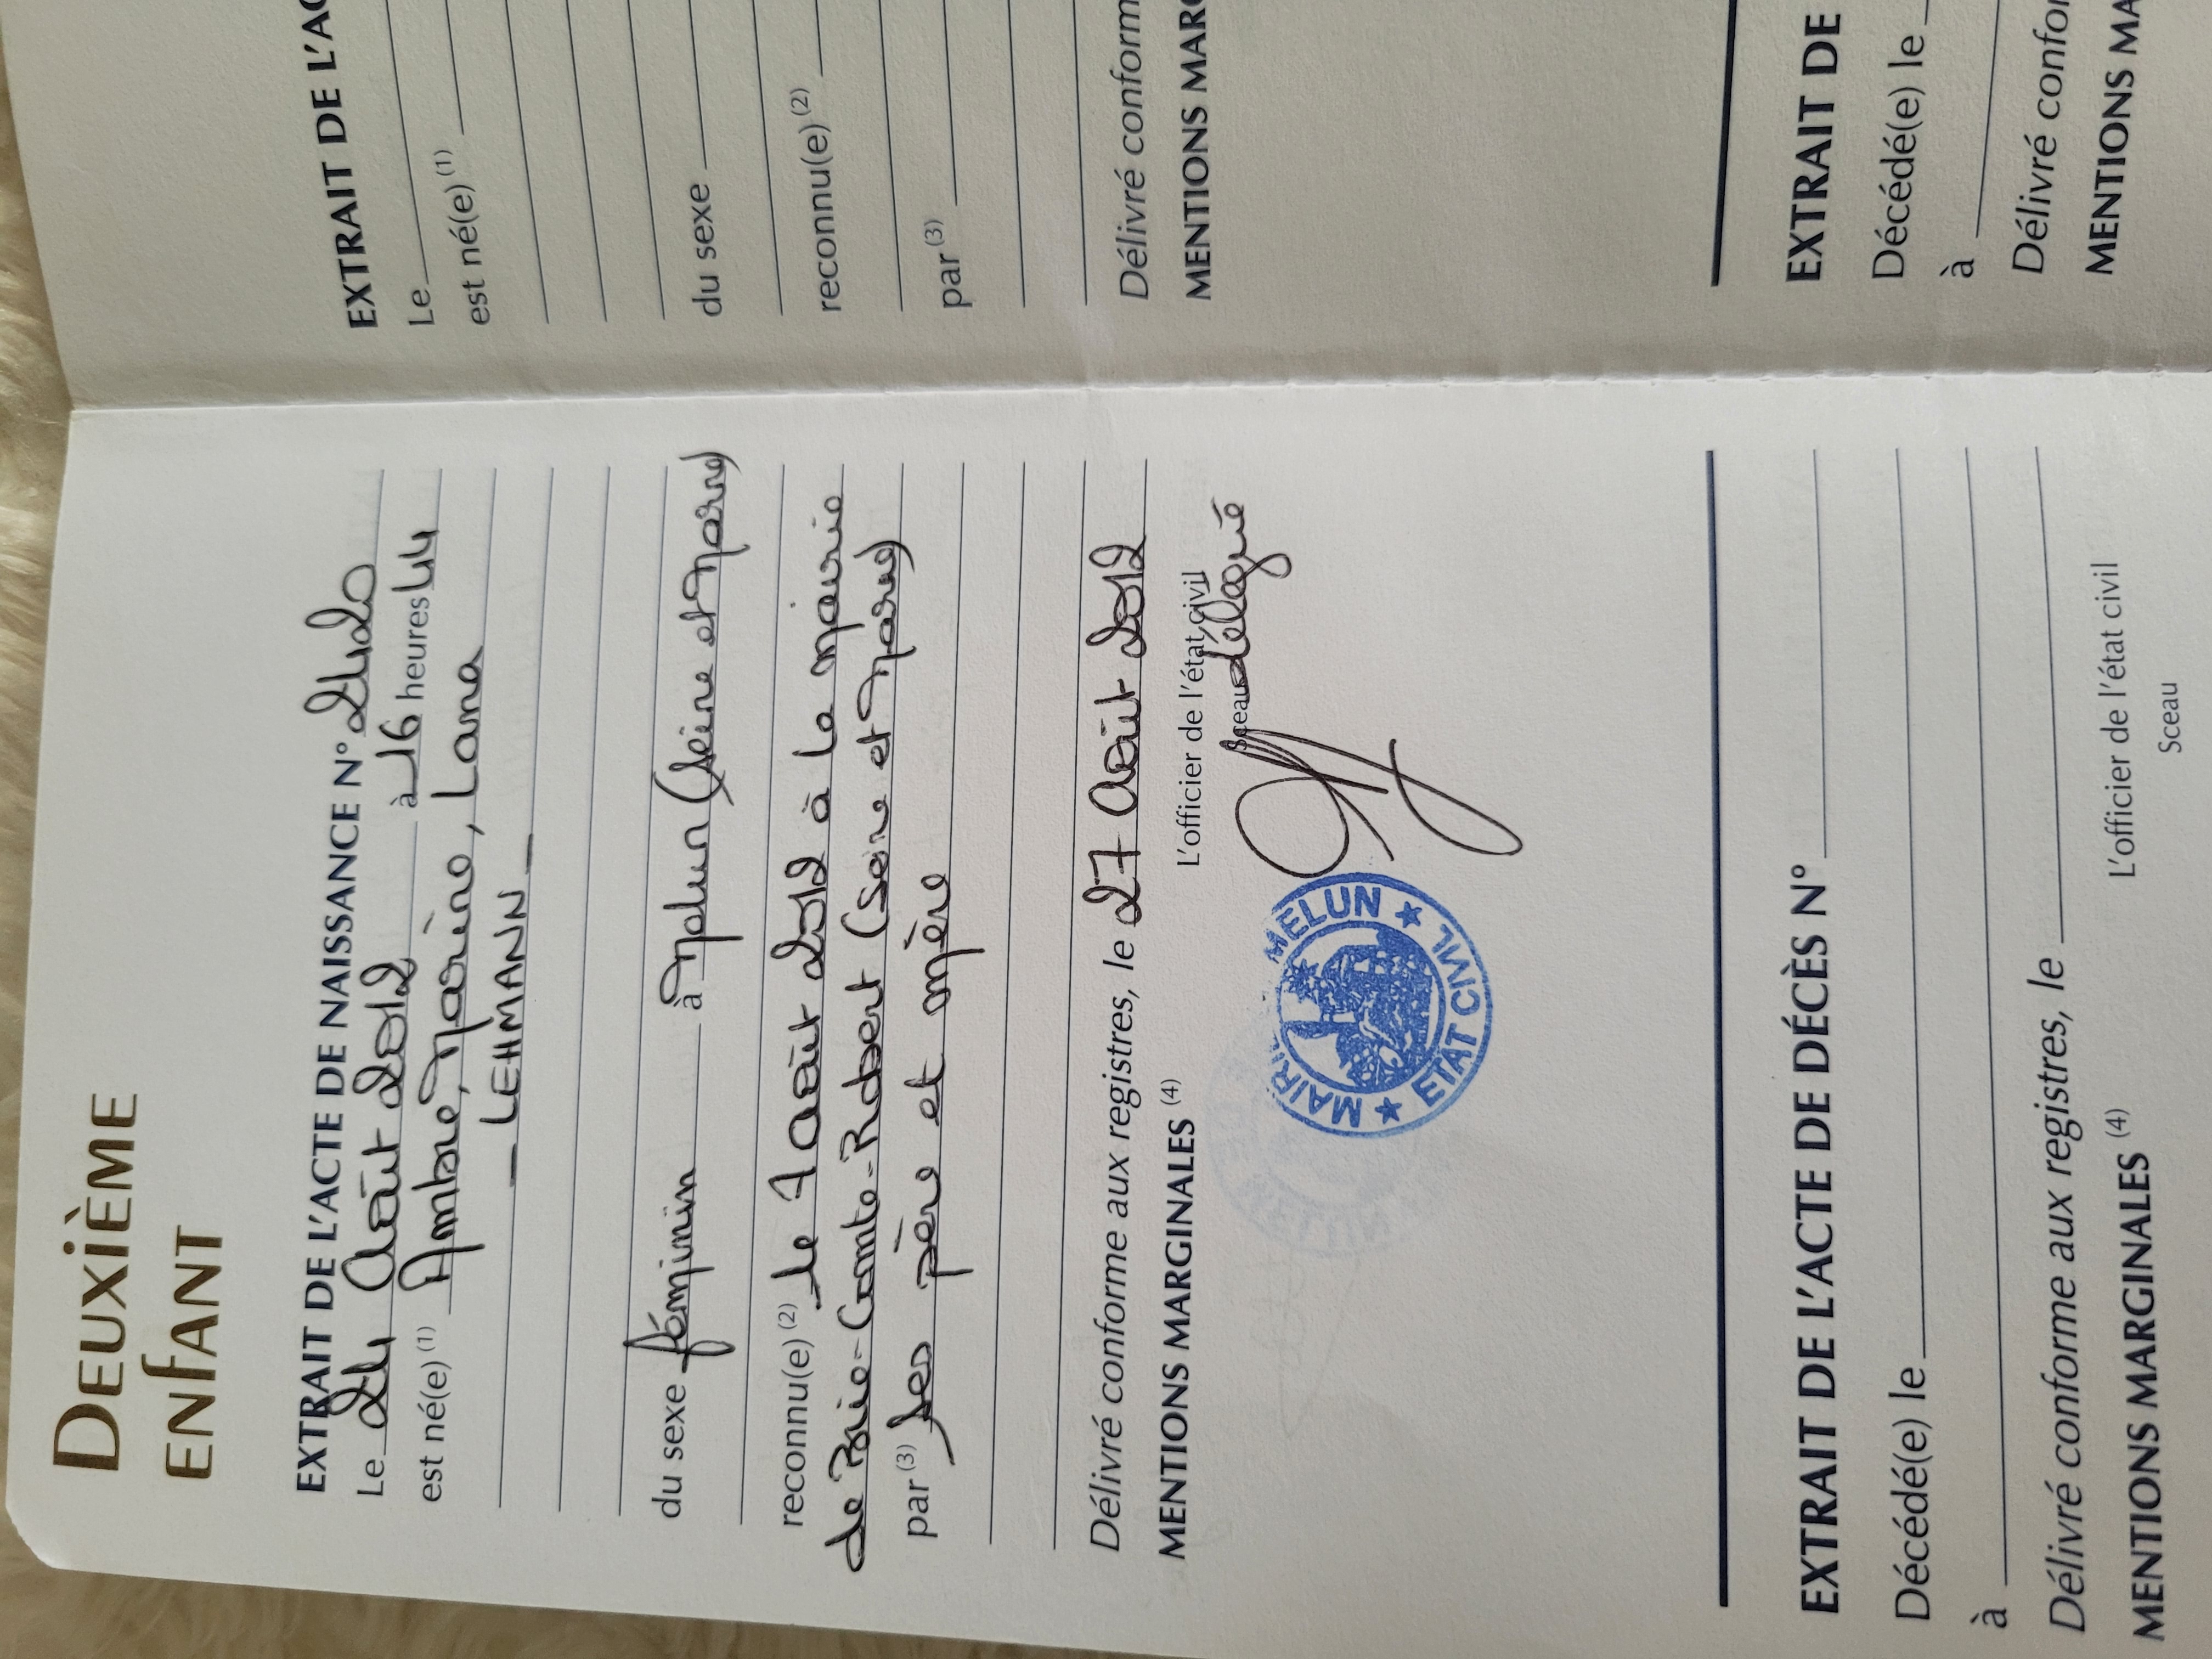 DEUXIÈME
ENFANT
EXTRAIT DE L'ACTE DE NAISSANCE N° 2420
Le 24 Août 2012 à 16 heures 44
est né(e) (1) Ambre, Marine, Lana
— LEHMANN —
du sexe féminin à Melun (Seine et Marne)
reconnu(e) (2) le 7 août 2012 à la mairie
de Brie-Comte-Robert (Seine et Marne)
par (3) ses père et mère
Délivré conforme aux registres, le 27 Août 2012
MENTIONS MARGINALES (4)
L'officier de l'état civil
Sceau délégué
MAIRIE MELUN
★ ETAT CIVIL ★
EXTRAIT DE L'ACTE DE DÉCÈS N°
Décédé(e) le
à
Délivré conforme aux registres, le
MENTIONS MARGINALES (4)
L'officier de l'état civil
Sceau
EXTRAIT DE L'AC
Le
est né(e) (1)
du sexe
reconnu(e) (2)
par (3)
Délivré conform
MENTIONS MARG
EXTRAIT DE
Décédé(e) le
à
Délivré confor
MENTIONS MA